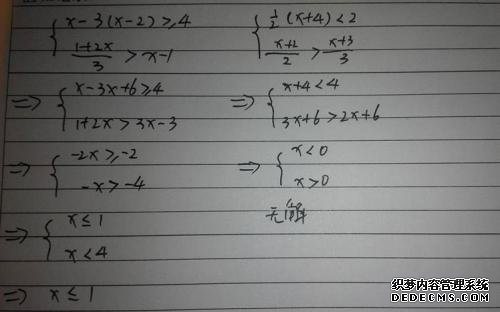 { x-3(x-2)≥4
1+2x/3 > x-1
⇒ { x-3x+6≥4
1+2x>3x-3
⇒ { -2x≥-2
-x>-4
⇒ { x≤1
x<4
⇒ x≤1
{ 1/2(x+4)<2
x+2/2 > x+3/3
⇒ { x+4<4
3x+6>2x+6
⇒ { x<0
x>0
无解
织梦内容管理系统
DEDECMS.COM